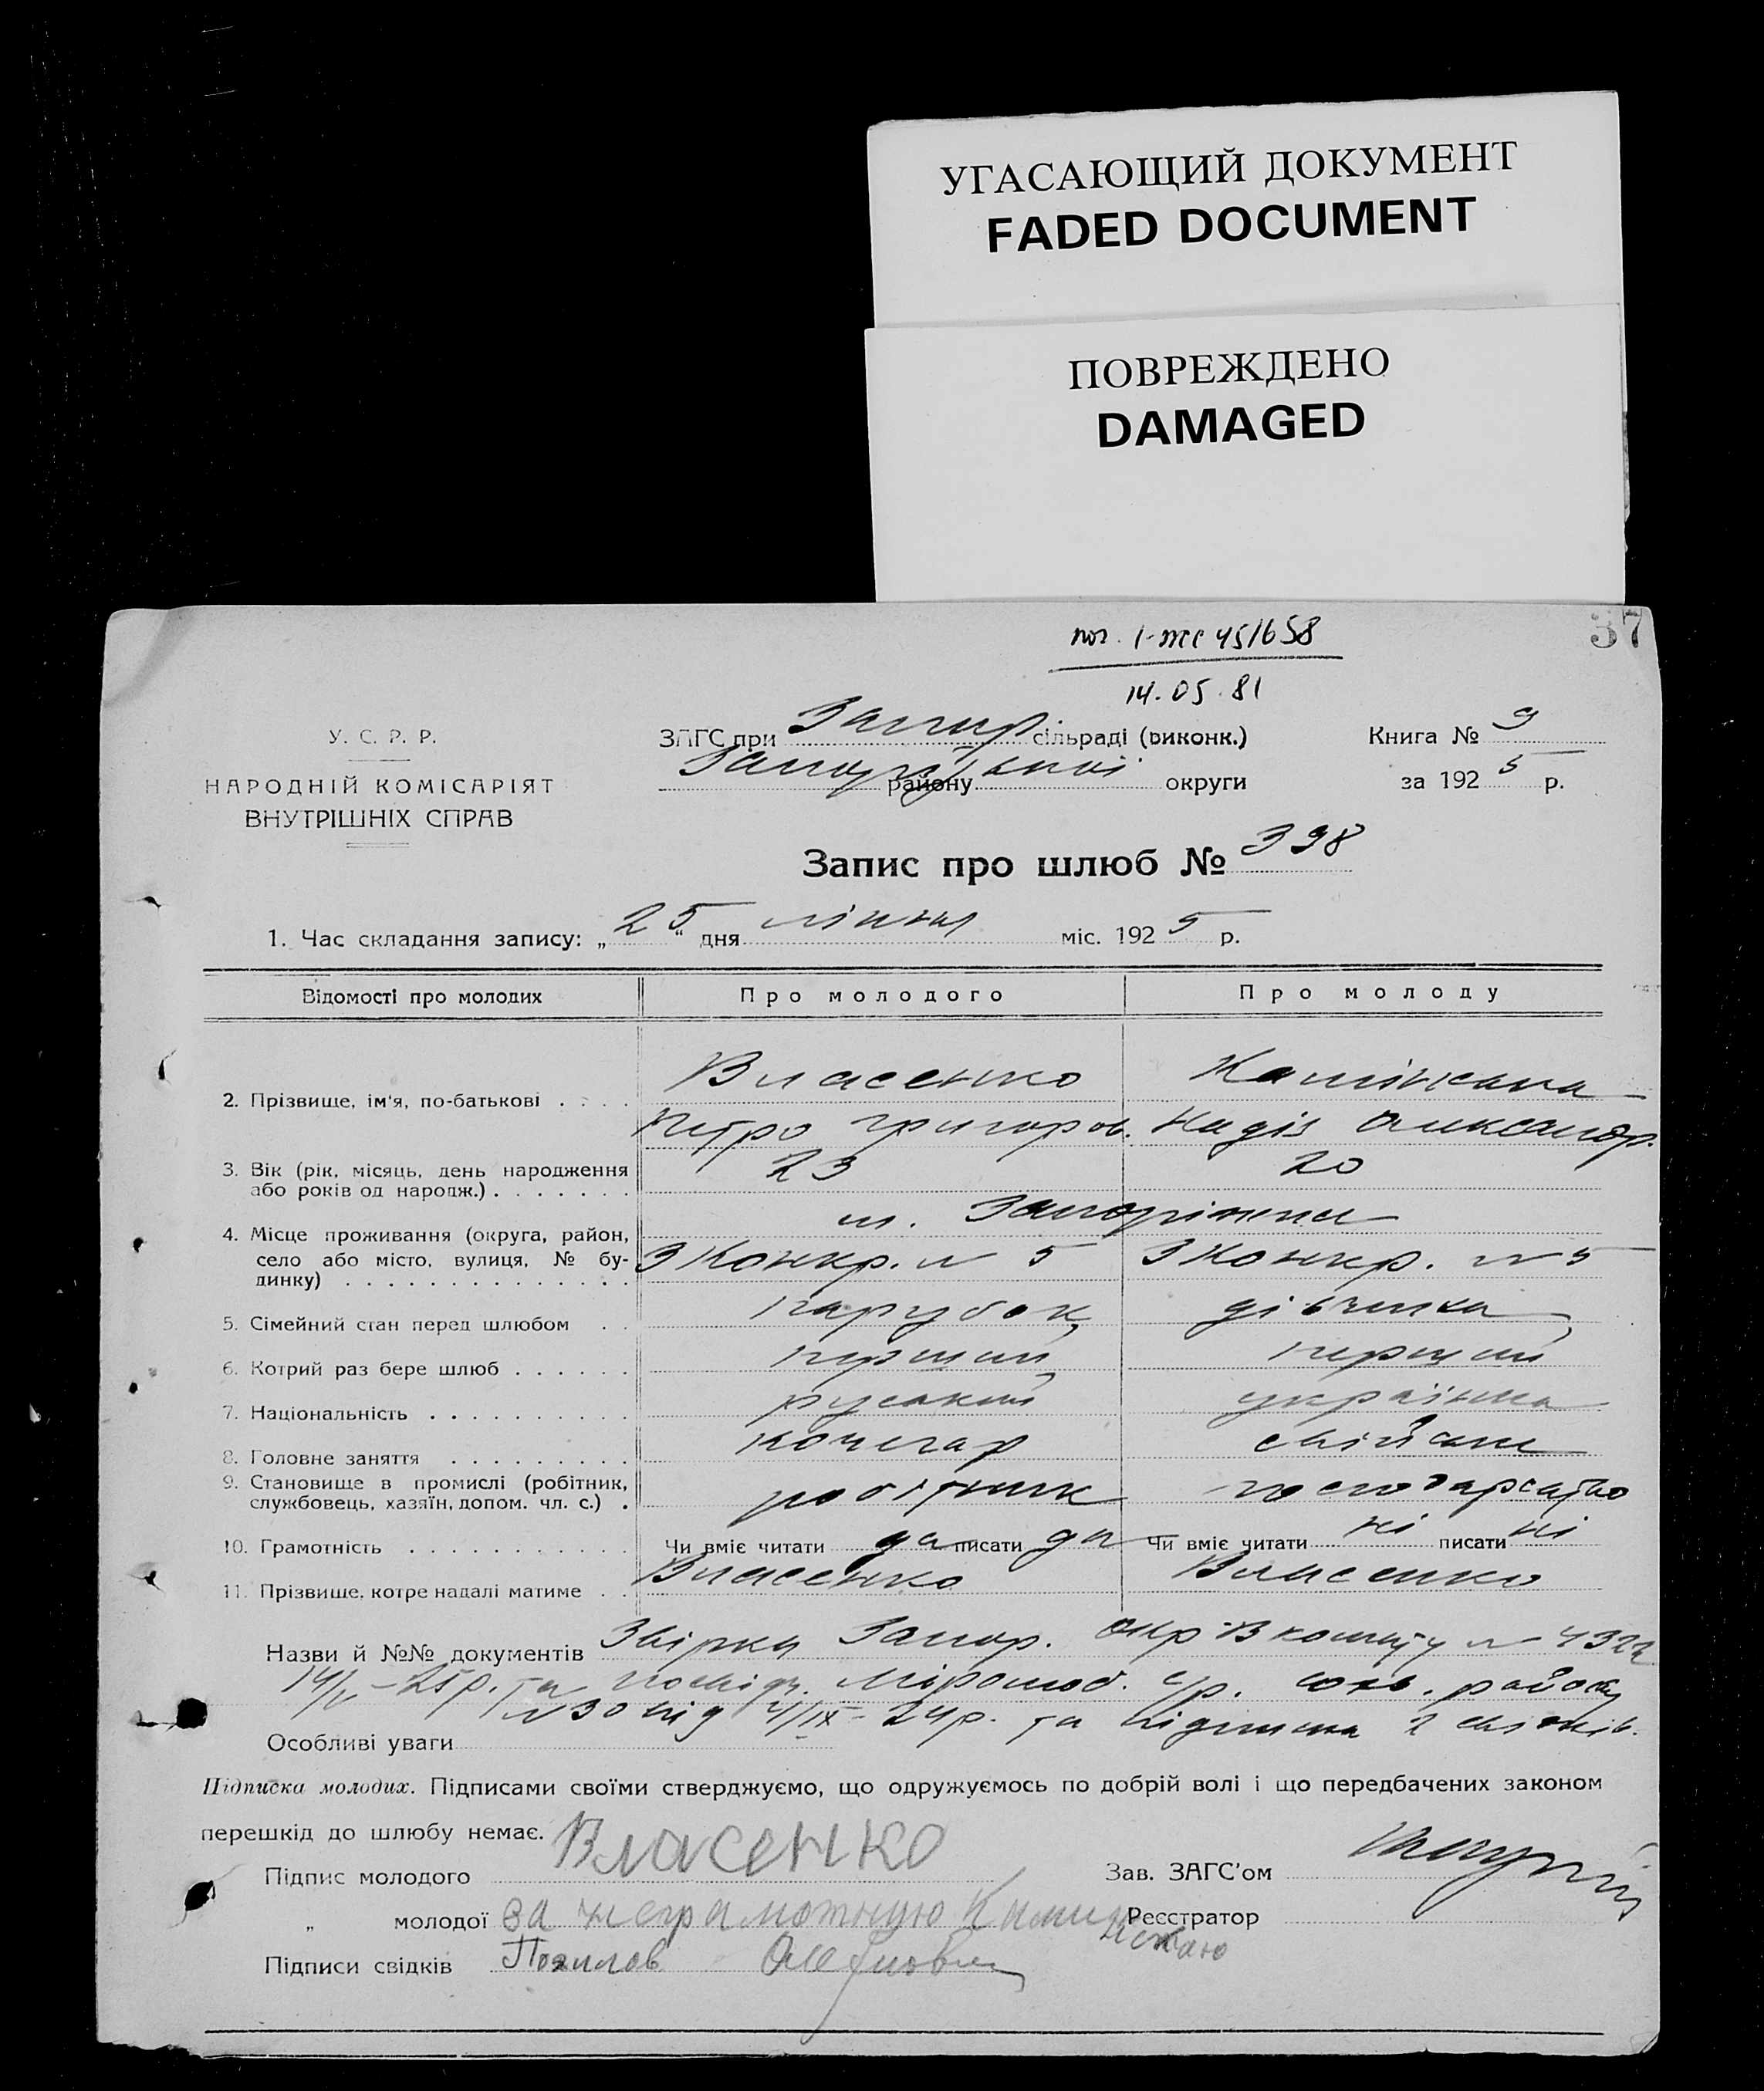 УГАСАЮЩИЙ ДОКУМЕНТ
FADED DOCUMENT
ПОВРЕЖДЕНО
DAMAGED
37
14.05.81
У. С. Р. Р.
НАРОДНІЙ КОМІСАРІЯТ
ВНУТРІШНІХ СПРАВ
ЗАГС при Запор сільраді (виконк.)
району округи
Книга № 9
за 1925 р.
Запис про шлюб № 398
1. Час складання запису: „25“ дня липня міс. 1925 р.
Відомості про молодих Про молодого Про молоду
2. Прізвище, ім'я, по-батькові . . . . Власенко
Петро Григоров. Надія Олександр.
3. Вік (рік, місяць, день народження
або років од народж.) . . . . . . . 23 20
4. Місце проживання (округа, район,
село або місто, вулиця, № бу-
динку) . . . . . . . . . . . . . .
м. Запоріжжя
3 Конкр. № 5 3 Конкр. № 5
5. Сімейний стан перед шлюбом . . парубок дівчина
6. Котрий раз бере шлюб . . . . . . перший перший
7. Національність . . . . . . . . . . руський українка
8. Головне заняття . . . . . . . . . кочегар
9. Становище в промислі (робітник,
службовець, хазяїн, допом. чл. с.) . робітник господарство
10. Грамотність . . . . . . . . . . . Чи вміє читати да писати да Чи вміє читати ні писати ні
11. Прізвище, котре надалі матиме . . Власенко Власенко
Назви й №№ документів Запор. Окр
та с/р. району
№ 30 від 4/IX - 24 р. та
Особливі уваги
Підписка молодих. Підписами своїми стверджуємо, що одружуємось по добрій волі і що передбачених законом
перешкід до шлюбу немає.
Підпис молодого Власенко
Зав. ЗАГС'ом
„ молодої за неграмотную
Реєстратор
Підписи свідків